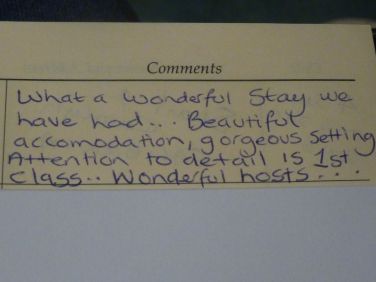 Comments
What a wonderful Stay we
have had... Beautiful
accomodation, gorgeous Setting
Attention to detail is 1st
class.. Wonderful hosts...